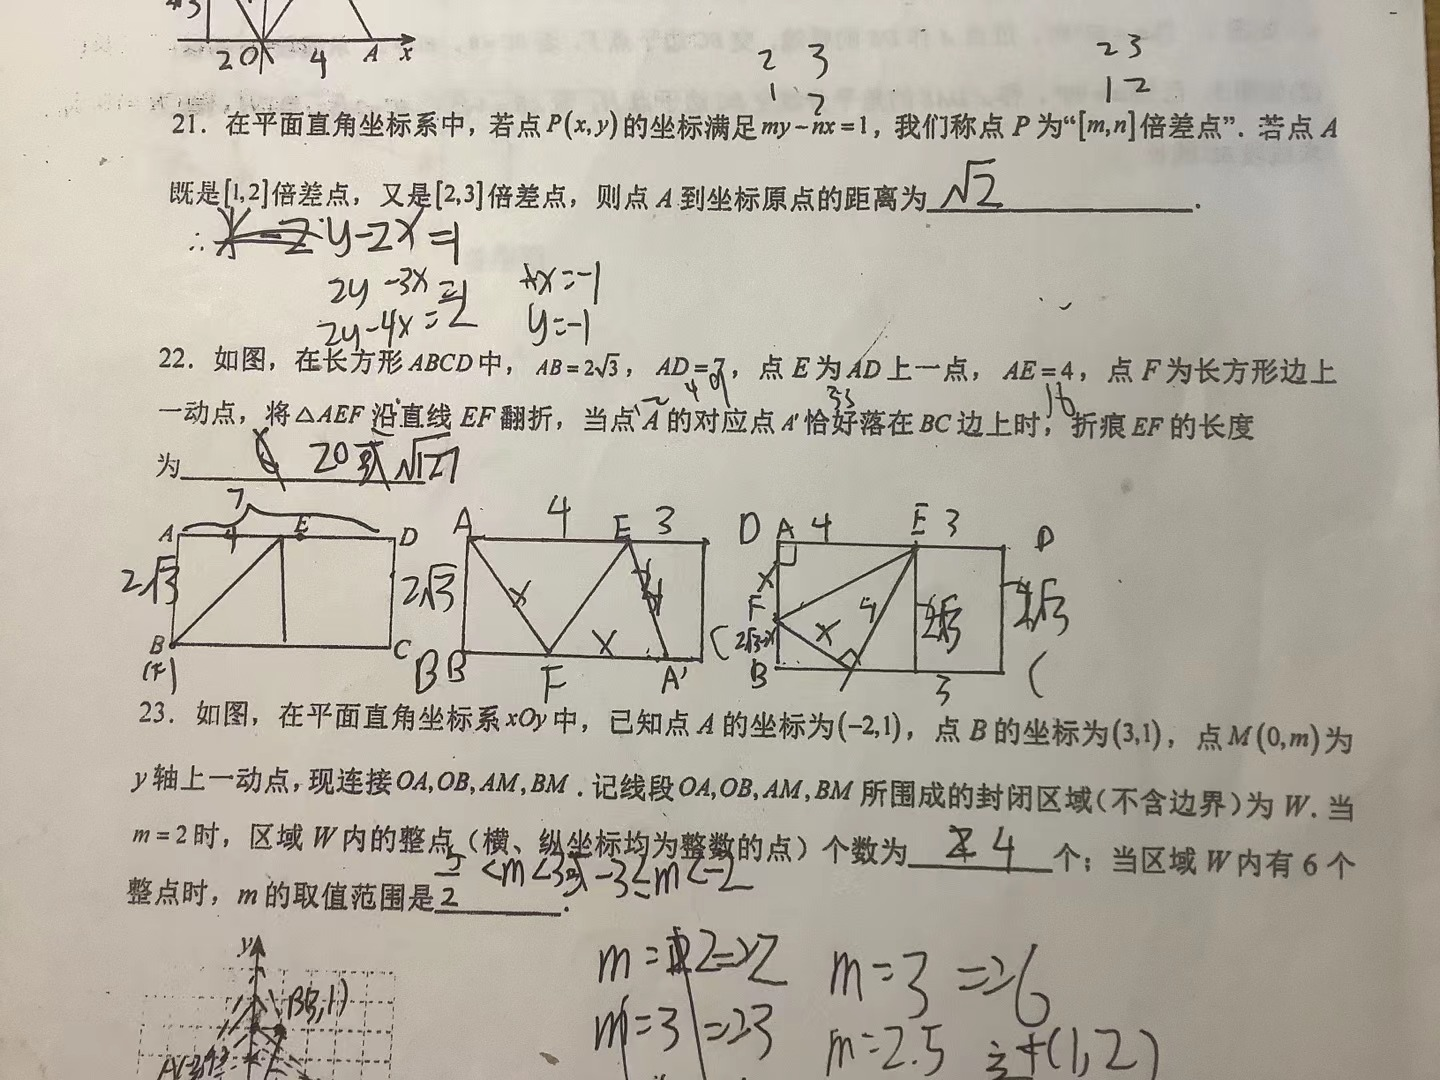 2 O 4 A x
2 3 2 3
1 2 1 2
21．在平面直角坐标系中，若点P(x,y)的坐标满足my−nx=1，我们称点P为“[m,n]倍差点”．若点A
既是[1,2]倍差点，又是[2,3]倍差点，则点A到坐标原点的距离为√2．
∴ y-2x=1
2y-3x=1 x=-1
2y-4x=2 y=-1
22．如图，在长方形ABCD中，AB=2√3，AD=7，点E为AD上一点，AE=4，点F为长方形边上
一动点，将△AEF沿直线EF翻折，当点A的对应点A'恰好落在BC边上时，折痕EF的长度
为
7
A 4 E D A 4 E 3 D A 4 E 3 D
2√3 2√3 x x x F x 4 2√3
B C B B F A' C B 3 C
(F)
23．如图，在平面直角坐标系xOy中，已知点A的坐标为(−2,1)，点B的坐标为(3,1)，点M(0,m)为
y轴上一动点，现连接OA,OB,AM,BM．记线段OA,OB,AM,BM所围成的封闭区域(不含边界)为W．当
m=2时，区域W内的整点（横、纵坐标均为整数的点）个数为4个；当区域W内有6个
整点时，m的取值范围是5/2<m<3或-3≤m<-2．
y
B(3,1)
m=3 =>6
m=3 =>3
m=2.5 (1,2)